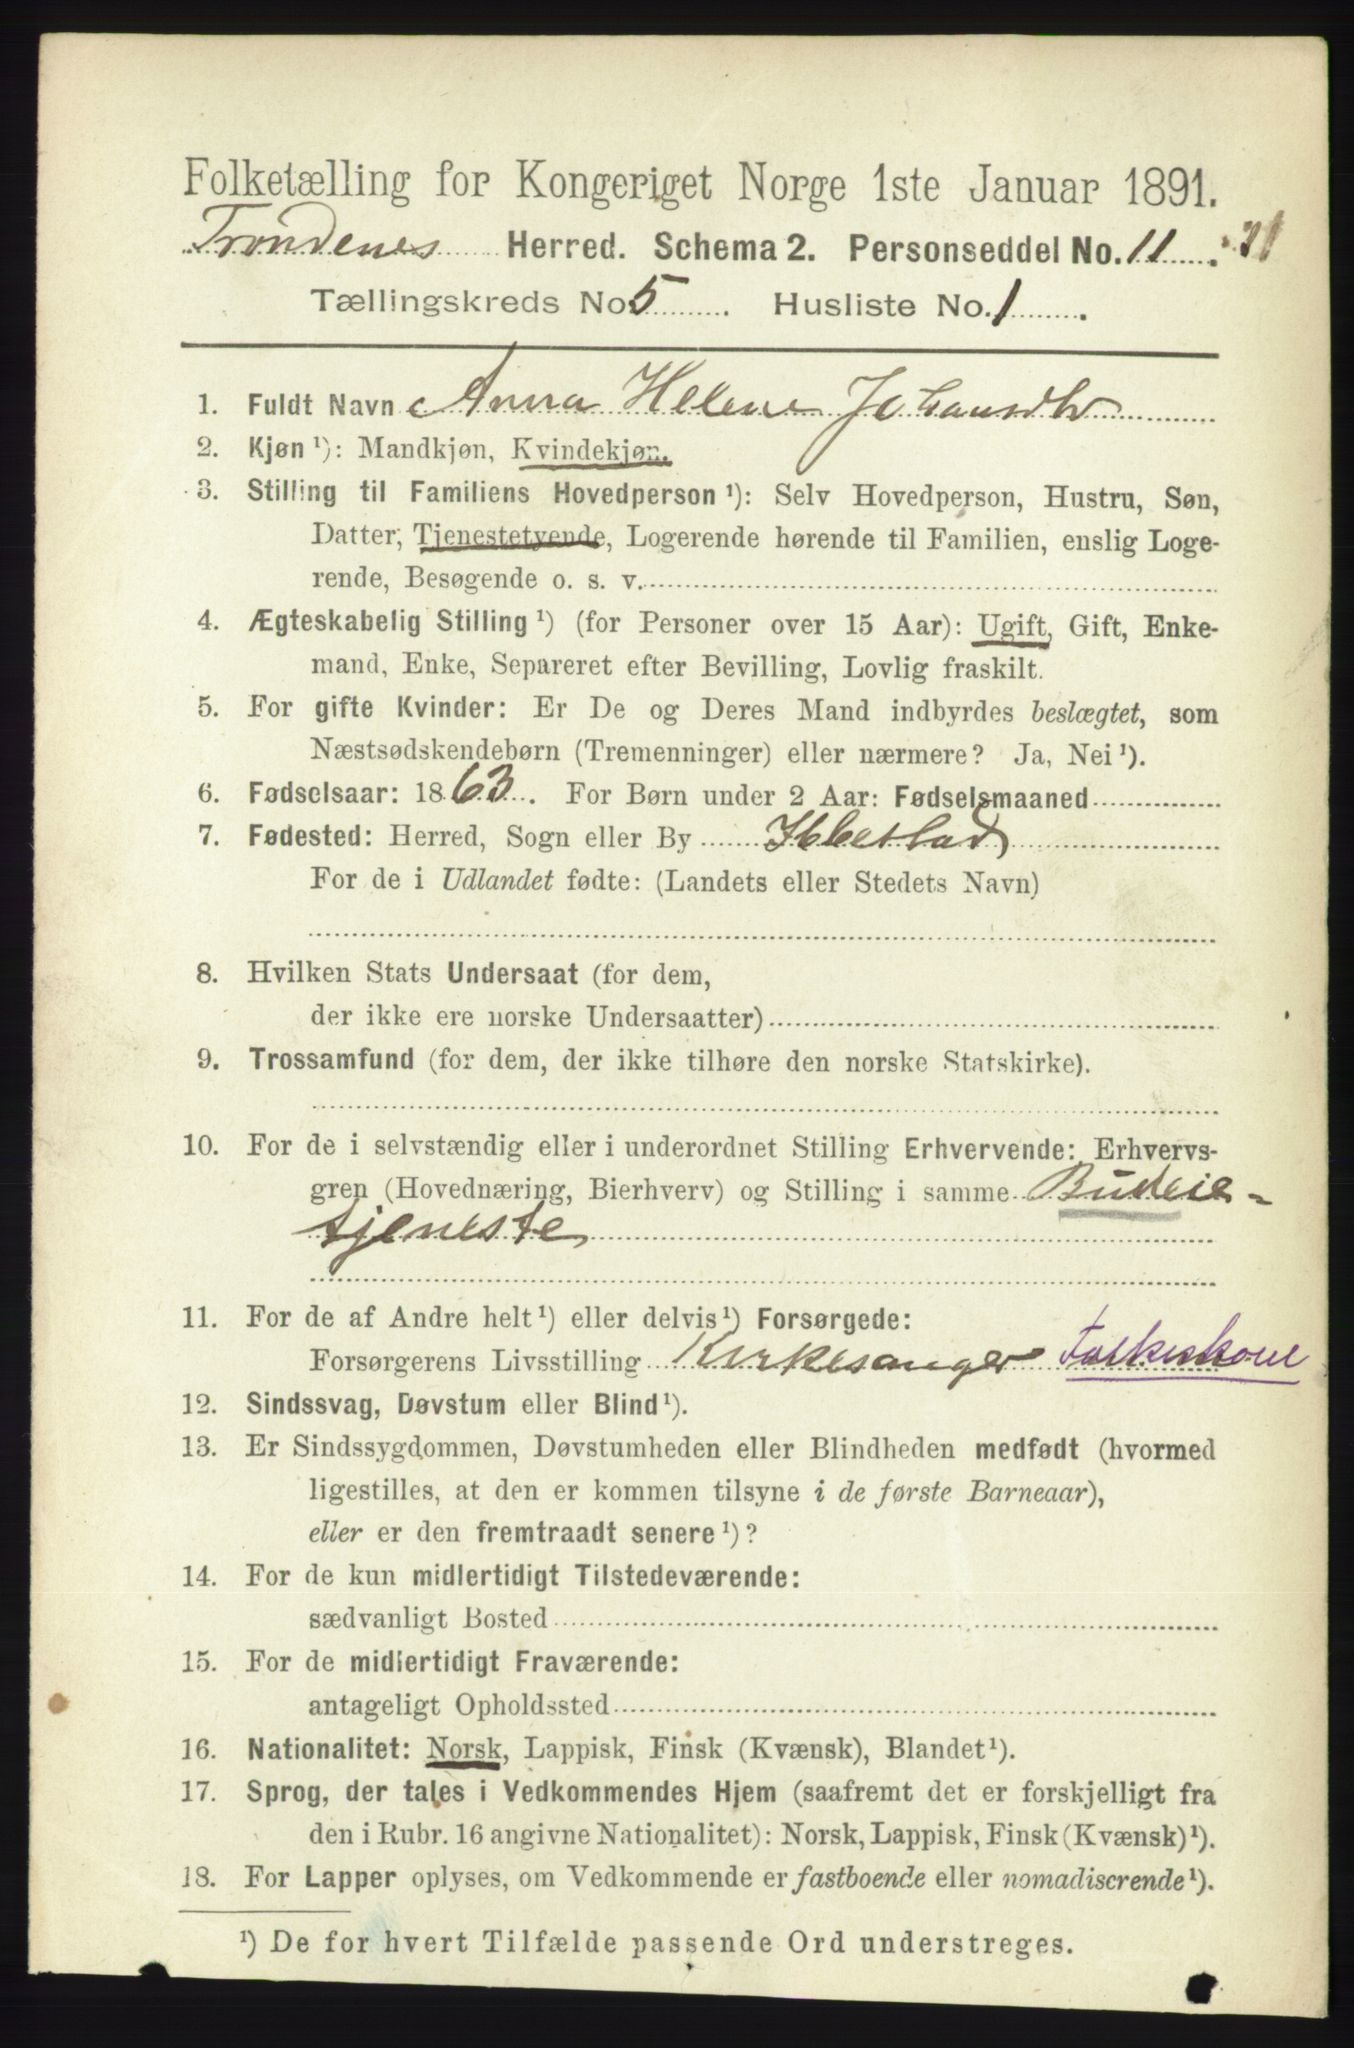 Folketælling for Kongeriget Norge 1ste Januar 1891.
Trondenes Herred. Schema 2. Personseddel No. 11.
Tællingskreds No. 5. Husliste No. 1.
1. Fuldt Navn Anna Helene Johansdtr
2. Kjøn ¹): Mandkjøn, Kvindekjøn.
3. Stilling til Familiens Hovedperson ¹): Selv Hovedperson, Hustru, Søn,
Datter, Tjenestetyende, Logerende hørende til Familien, enslig Loge-
rende, Besøgende o. s. v.
4. Ægteskabelig Stilling ¹) (for Personer over 15 Aar): Ugift, Gift, Enke-
mand, Enke, Separeret efter Bevilling, Lovlig fraskilt.
5. For gifte Kvinder: Er De og Deres Mand indbyrdes beslægtet, som
Næstsødskendebørn (Tremenninger) eller nærmere? Ja, Nei ¹).
6. Fødselsaar: 1863. For Børn under 2 Aar: Fødselsmaaned
7. Fødested: Herred, Sogn eller By Ibbestad
For de i Udlandet fødte: (Landets eller Stedets Navn)
8. Hvilken Stats Undersaat (for dem,
der ikke ere norske Undersaatter)
9. Trossamfund (for dem, der ikke tilhøre den norske Statskirke).
10. For de i selvstændig eller i underordnet Stilling Erhvervende: Erhvervs-
gren (Hovednæring, Bierhverv) og Stilling i samme Budeie-
tjeneste
11. For de af Andre helt ¹) eller delvis ¹) Forsørgede:
Forsørgerens Livsstilling Kirkesanger Folkeskoul
12. Sindssvag, Døvstum eller Blind ¹).
13. Er Sindssygdommen, Døvstumheden eller Blindheden medfødt (hvormed
ligestilles, at den er kommen tilsyne i de første Barneaar),
eller er den fremtraadt senere ¹)?
14. For de kun midlertidigt Tilstedeværende:
sædvanligt Bosted
15. For de midlertidigt Fraværende:
antageligt Opholdssted
16. Nationalitet: Norsk, Lappisk, Finsk (Kvænsk), Blandet ¹).
17. Sprog, der tales i Vedkommendes Hjem (saafremt det er forskjelligt fra
den i Rubr. 16 angivne Nationalitet): Norsk, Lappisk, Finsk (Kvænsk) ¹).
18. For Lapper oplyses, om Vedkommende er fastboende eller nomadiserende ¹).
¹) De for hvert Tilfælde passende Ord understreges.